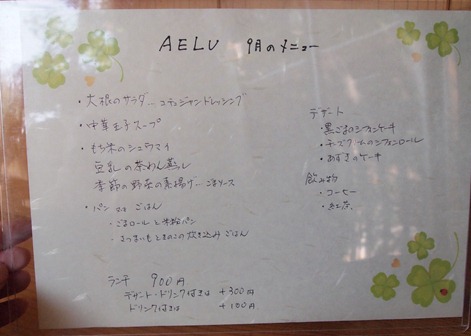 AELU 9月のメニュー
・大根のサラダ… コチュジャンドレッシング
・中華玉子スープ
・もち米のシュウマイ
豆乳の茶わん蒸し
季節の野菜の素揚げ… ごまソース
・パン or ごはん
・ごまロールと米粉パン
・さつまいもときのこの炊き込みごはん
ランチ 900円
デザート・ドリンク付きは +300円
ドリンク付きは +100円
デザート
・黒ごまのシフォンケーキ
・チーズクリームのシフォンロール
・あずきのケーキ
飲み物
・コーヒー
・紅茶